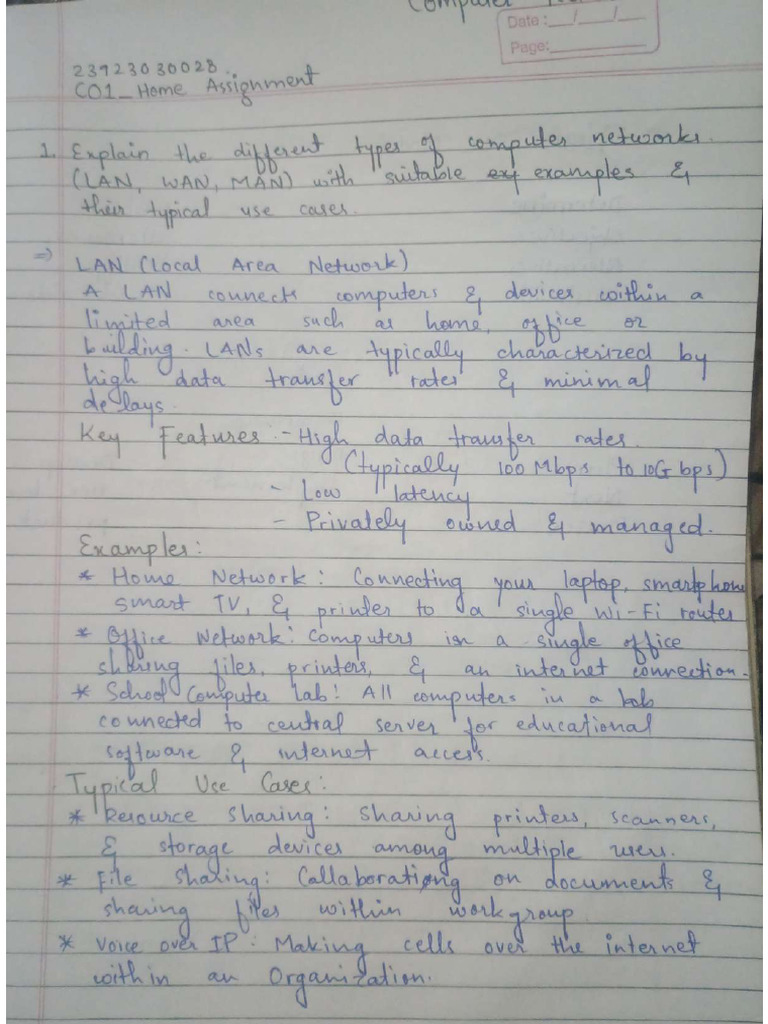 Computer
Date: __/__/__
Page:
23923030028
CO1_Home Assignment
1. Explain the different types of computer networks.
(LAN, WAN, MAN) with suitable exa examples &
their typical use cases.
⇒ LAN (Local Area Network)
A LAN connects computers & devices within a
limited area such as home, office or
building. LANs are typically characterized by
high data transfer rates & minimal
delays.
Key Features - High data transfer rates.
(typically 100 Mbps to 10G bps)
- Low latency
- Privately owned & managed.
Examples:
* Home Network: Connecting your laptop, smartphone
smart TV, & printer to a single Wi-Fi router
* Office Network: Computers in a single office
sharing files, printers, & an internet connection.
* School Computer Lab: All computers in a lab
connected to central server for educational
software & internet access.
Typical Use Cases:
* Resource Sharing: Sharing printers, scanners,
& storage devices among multiple users.
* File Sharing: Callaborating on documents &
sharing files within workgroup
* Voice over IP: Making cells over the internet
within an Organization.